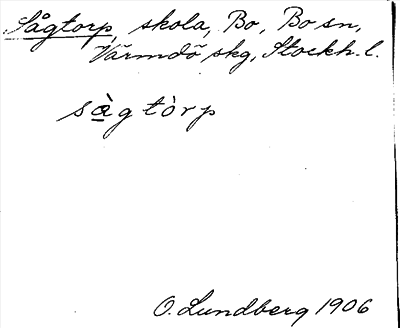 Sågtorp, skola, Bo, Bo sn,
Värmdö skg, Stockh. l.
sàg tòrp
O. Lundberg 1906